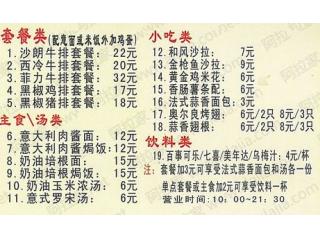 套餐类(配意面或米饭外加鸡蛋)
1.沙朗牛排套餐: 22元
2.西冷牛排套餐: 20元
3.菲力牛排套餐: 32元
4.黑椒鸡排套餐: 18元
5.黑椒猪排套餐: 18元
主食\汤类
6.意大利肉酱面: 12元
7.意大利肉酱焗饭: 12元
8.奶油培根面: 15元
9.奶油培根焗饭: 15元
10.奶油玉米浓汤: 6元
11.意式罗宋汤: 6元
小吃类
12.和风沙拉: 7元
13.金枪鱼沙拉: 9元
14.黄金鸡米花: 6元
15.香肠薯条配: 6元
16.法式蒜香面包: 3元
17.奥尔良烤翅: 6元/2只 8元/3只
18.蒜香翅根: 6元/2只 8元/3只
饮料类
19.百事可乐/七喜/美年达/乌梅汁: 4元/杯
注: 套餐加3元可享受法式蒜香面包和汤各一份
单点套餐或主食加2元可享受饮料一杯
营业时间: 10:00-21:30